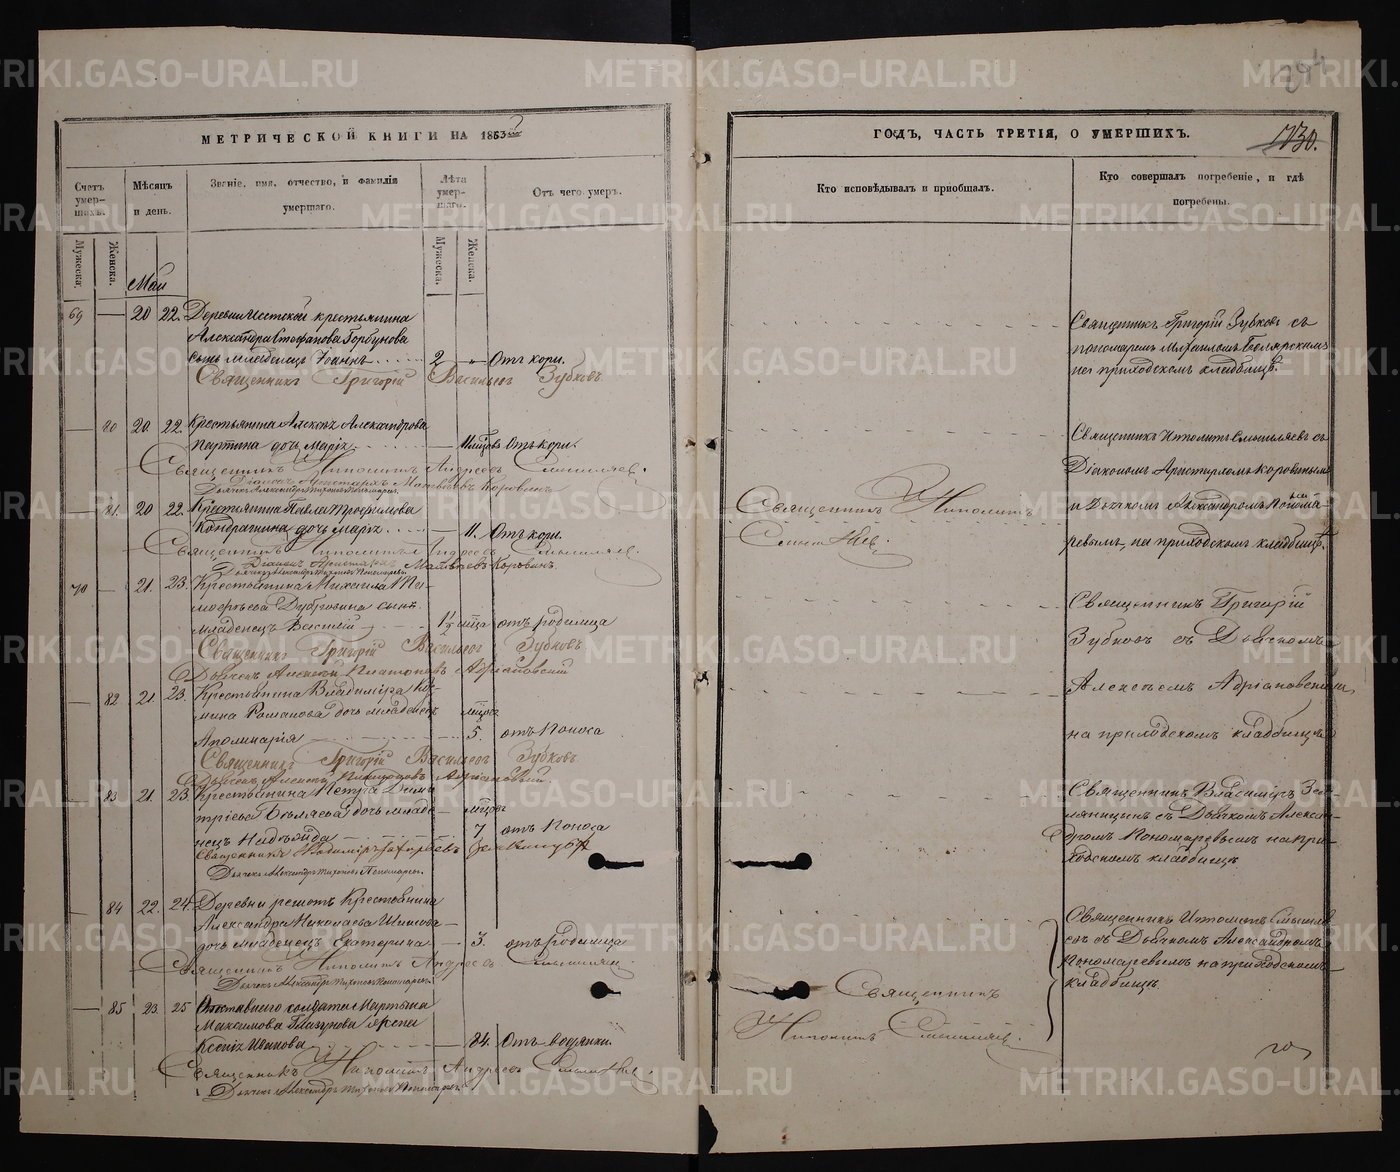 294
МЕТРИЧЕСКОЙ КНИГИ НА 1863
Счетъ умер-шихъ.
Мужеска.
Женска.
Мѣсяцъ и день.
Званіе, имя, отчество, и фамилія умершаго.
Лѣта умер-шаго.
Мужеска.
Женска.
Отъ чего умеръ.
Май
69 — 20 22. Деревни Истской крестьянина
Александра Стефанова Горбунова
сынъ младенецъ Іоаннъ 2 " Отъ кори.
Священникъ Григорій Васильевъ Зубковъ
— 80 20. 22. Крестьянина Александрова
дочь Марія — Отъ кори.
Священникъ Ипполитъ Андреевъ Смышляевъ.
Діаконъ Аристархъ Матвѣевъ Коровинъ
Дьячекъ Александръ Тихоновъ Пономаревъ
— 81. 20 22. Крестьянина Павла Трофимова
Кондратина дочь Марія — 11. Отъ кори.
Священникъ Ипполитъ Андреевъ Смышляевъ
Діаконъ Аристархъ Матвѣевъ Коровинъ.
Дьячекъ Александръ Тихоновъ Пономаревъ
70 — 21. 23. Крестьянина Михаила Ти-
мофѣева Дубровина сынъ
младенецъ Василій 1½ мѣсца отъ родимца
Священникъ Григорій Васильевъ Зубковъ
Дьячекъ Алексѣй Платоновъ Адріановскій
— 82 21. 23. Крестьянина Владиміра Ко-
мина Романова дочь младенецъ мѣсцов
Аполинарія — 5. отъ поноса
Священникъ Григорій Васильевъ Зубковъ
Дьячекъ Алексѣй Платоновъ Адріановскій
— 83 21. 23. Крестьянина Петра Дими-
тріева Бѣляева дочь младе- мѣсцовъ
нецъ Надежда — 7 отъ поноса
Священникъ Владиміръ
Дьячекъ Александръ Тихоновъ Пономаревъ.
— 84 22. 24. Деревни решотъ Крестьянина
Александра Николаева Шилова
дочь младенецъ Екатерина — 3. отъ родимца
Священникъ Ипполитъ Андреевъ Смышляевъ
Дьячекъ Александръ Тихоновъ Пономаревъ
— 85 23. 25 Отставнаго солдата Мартына
Максимова Глазунова жена
Ксенія Иванова — 84. Отъ водянки.
Священникъ Ипполитъ Андреевъ Смышляевъ.
Дьячекъ Александръ Тихоновъ Пономаревъ
ГОДЪ, ЧАСТЬ ТРЕТІЯ, О УМЕРШИХЪ.
1730.
Кто исповѣдывалъ и пріобщалъ.
Кто совершалъ погребеніе, и гдѣ погребены.
Священникъ Григорій Зубковъ съ
пономаремъ Михаиломъ
на приходскомъ кладбищѣ.
Священникъ Ипполитъ Смышляевъ съ
Діакономъ Аристархомъ Коровинымъ
и Дьячкомъ Александромъ Понома-
ревымъ, на приходскомъ кладбищѣ.
Священникъ Ипполитъ
Смышляевъ.
Священникъ Григорій
Зубковъ съ Дьячкомъ
Алексѣемъ Адріановскимъ
на приходскомъ кладбищѣ
Священникъ Владиміръ Зем-
ляницинъ съ Дьячкомъ Алексан-
дромъ Пономаревымъ на при-
ходскомъ кладбищѣ
Священникъ Ипполитъ Смышля-
евъ съ Дьячкомъ Александромъ
Пономаревымъ на приходскомъ
кладбищѣ
Священникъ
Ипполитъ Смышляевъ.
METRIKI.GASO-URAL.RU